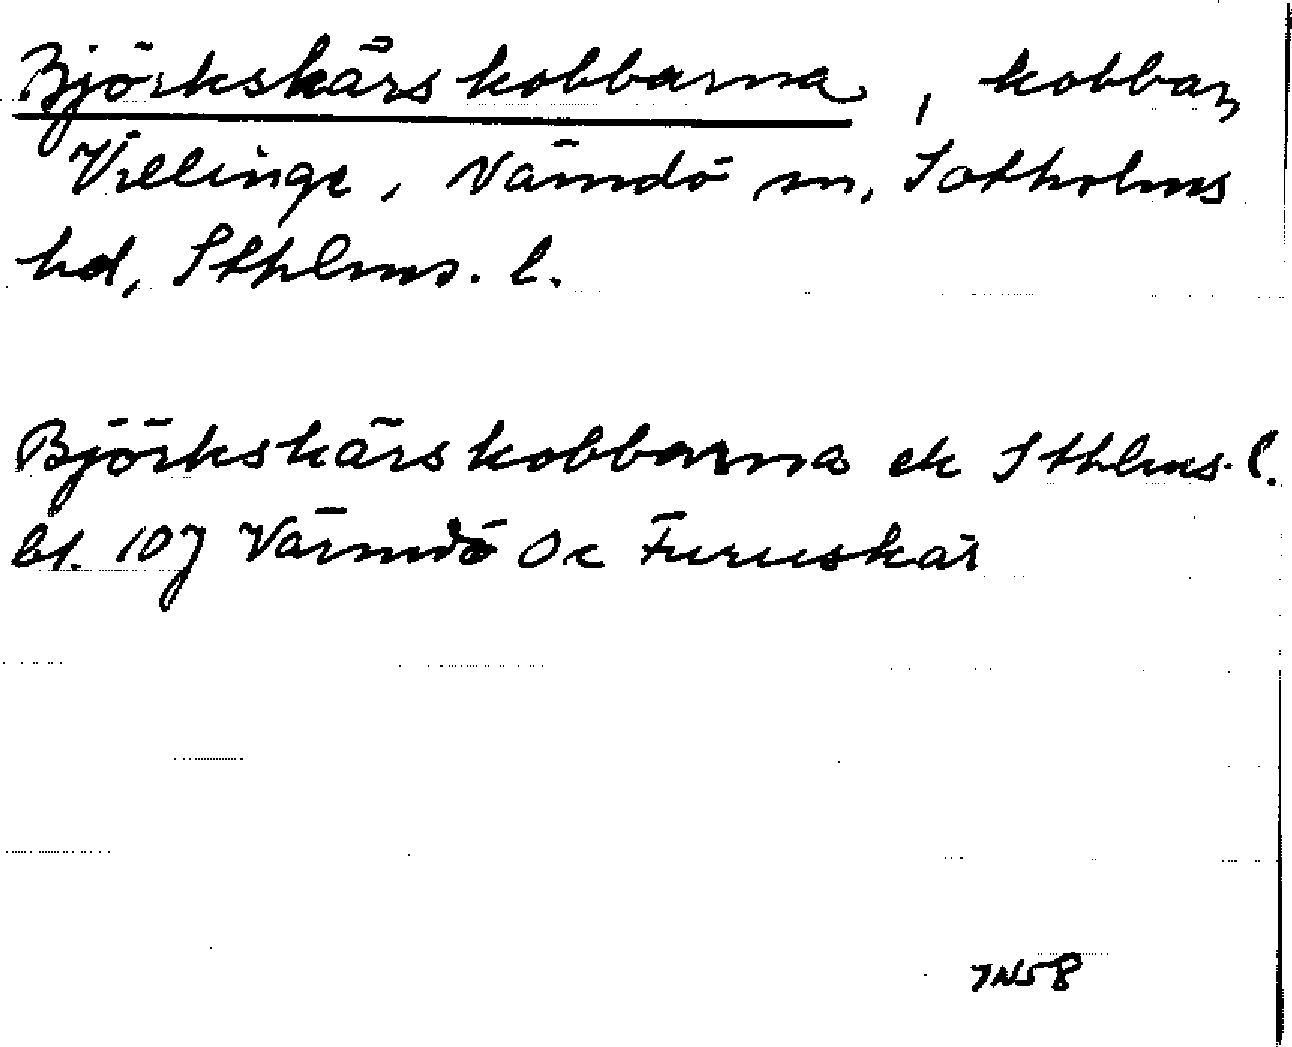 Björkskärskobbarna, kobbar,
Villinge, Nämdö sn, Sotholms
hd, Sthlms. l.
Björkskärskobbarna ek Sthlms. l.
bl. 107 Värmdö Oc Furuskär
JN58